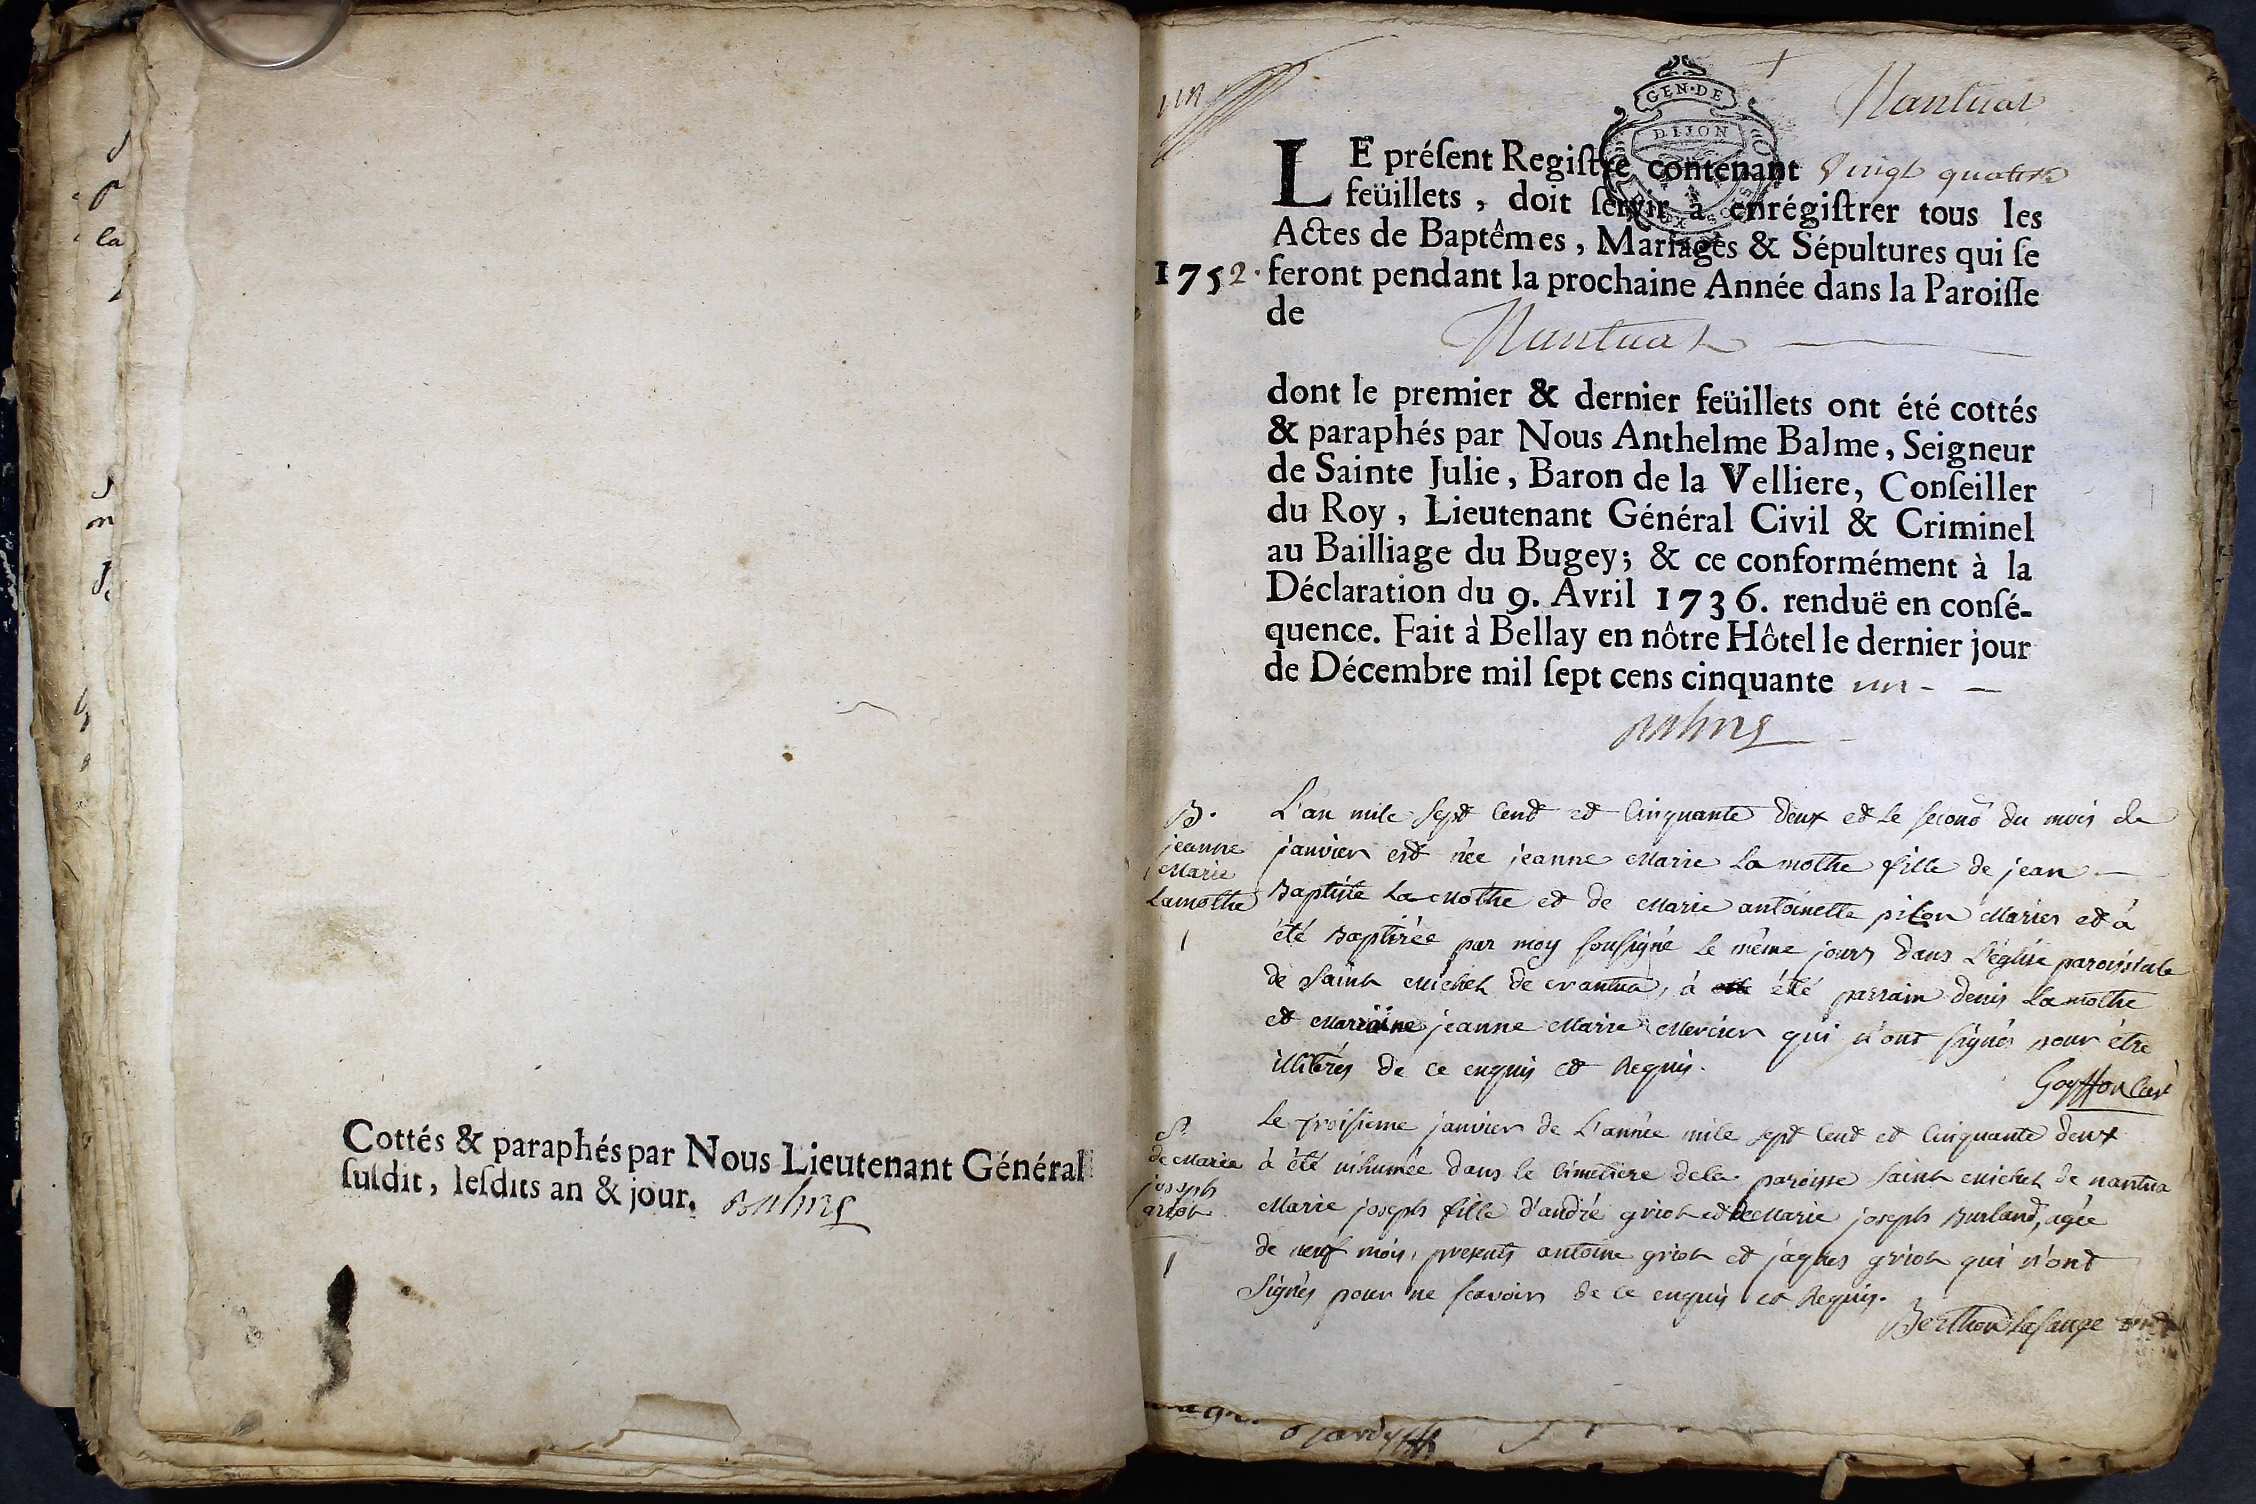 Cottés & paraphés par Nous Lieutenant Général
ſuſdit, leſdits an & jour. Balme
un
Nantuat
GEN·DE
DIJON
LE préſent Regiſtre contenant Vingt quatre
feüillets, doit ſervir à enrégiſtrer tous les
Actes de Baptêmes, Mariages & Sépultures qui ſe
1752. feront pendant la prochaine Année dans la Paroiſſe
de
Nantuat
dont le premier & dernier feüillets ont été cottés
& paraphés par Nous Anthelme Balme, Seigneur
de Sainte Julie, Baron de la Velliere, Conſeiller
du Roy, Lieutenant Général Civil & Criminel
au Bailliage du Bugey; & ce conformément à la
Déclaration du 9. Avril 1736. renduë en conſé-
quence. Fait à Bellay en nôtre Hôtel le dernier jour
de Décembre mil ſept cens cinquante un
Balme
B.
jeanne
Marie
Lamothe
1
L'an mile sept cent et cinquante deux et le second du mois de
janvier est née jeanne Marie La mothe fille de jean
Baptiste La Mothe et de Marie antoinette piton Mariés et à
été Baptisée par moy sousigné le même jours dans L'église paroissiale
de saint Michel de nantua, à été parrain denis La mothe
et Marraine jeanne Marie Mercier qui n'ont signés pour être
illitérés de ce enquis et Requis.
Goyffon Curé
S.
de Marie
joseph
griot
1
Le troisieme janvier de L'année mile sept cent et cinquante deux
à été inhumée dans le cimetiere de la paroisse saint Michel de nantua
Marie joseph fille d'andré griot et de Marie joseph Burland, agée
de neuf mois, presents antoine griot et jaques griot qui n'ont
Signés pour ne scavoir de ce enquis et Requis.
Berthet Lasauge